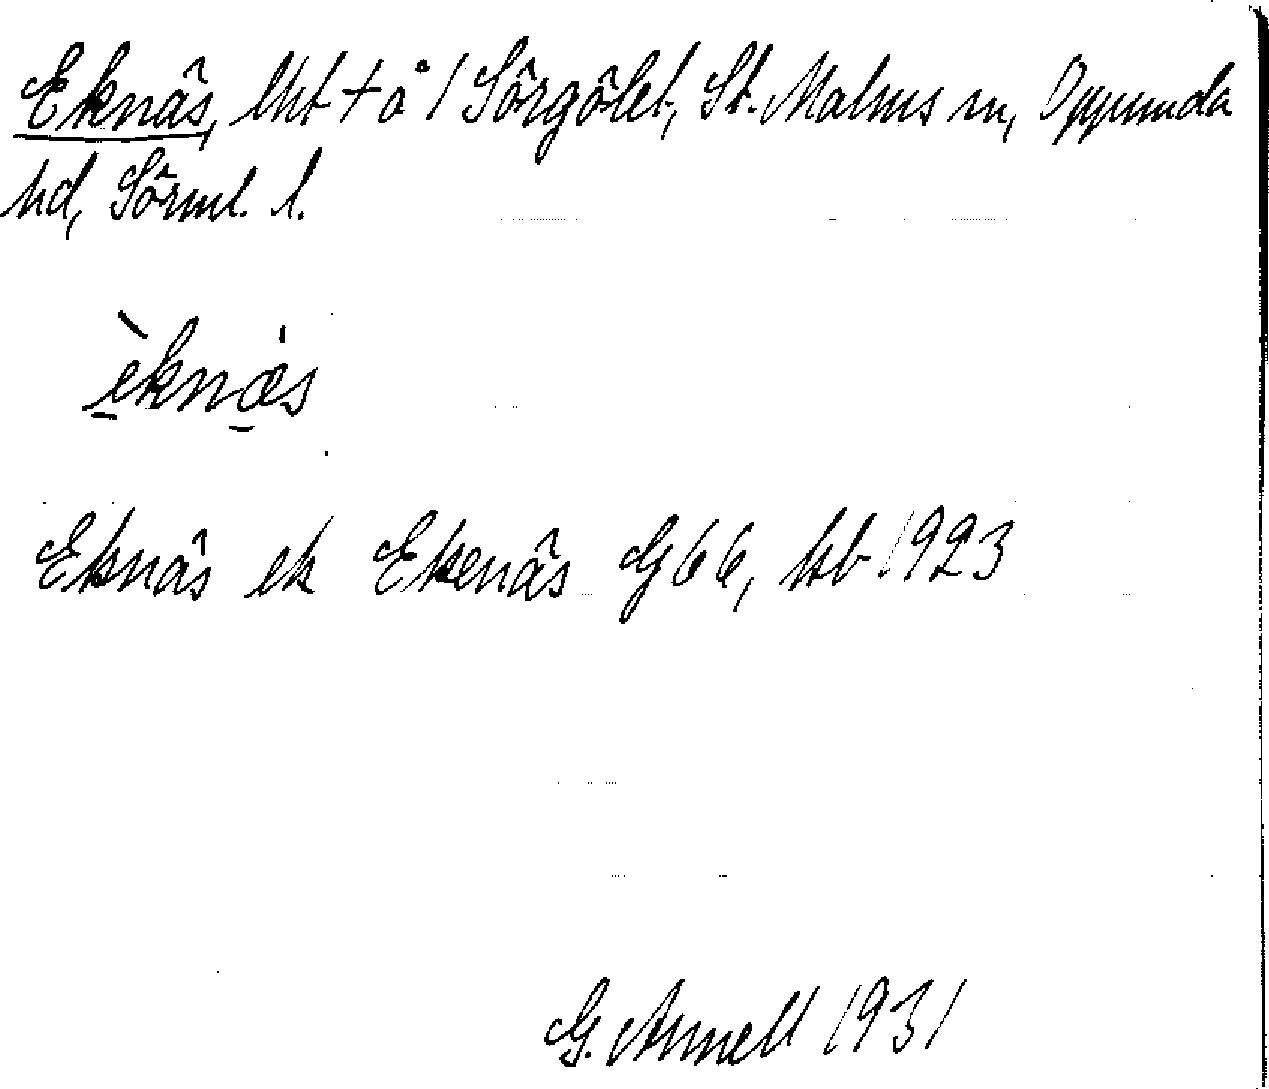 Eknäs, lht + å / Sörgölet, St. Malms sn, Oppunda
hd, Sörml. l.
èknæ̀s
Eknäs ek Ekenäs G 66, kb 1923
G. Annell 1931